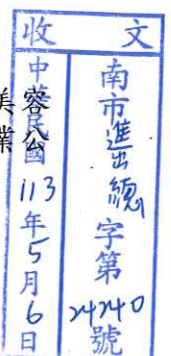 收文
南市進出總字第24240號
中華民國113年5月6日
美容
業公